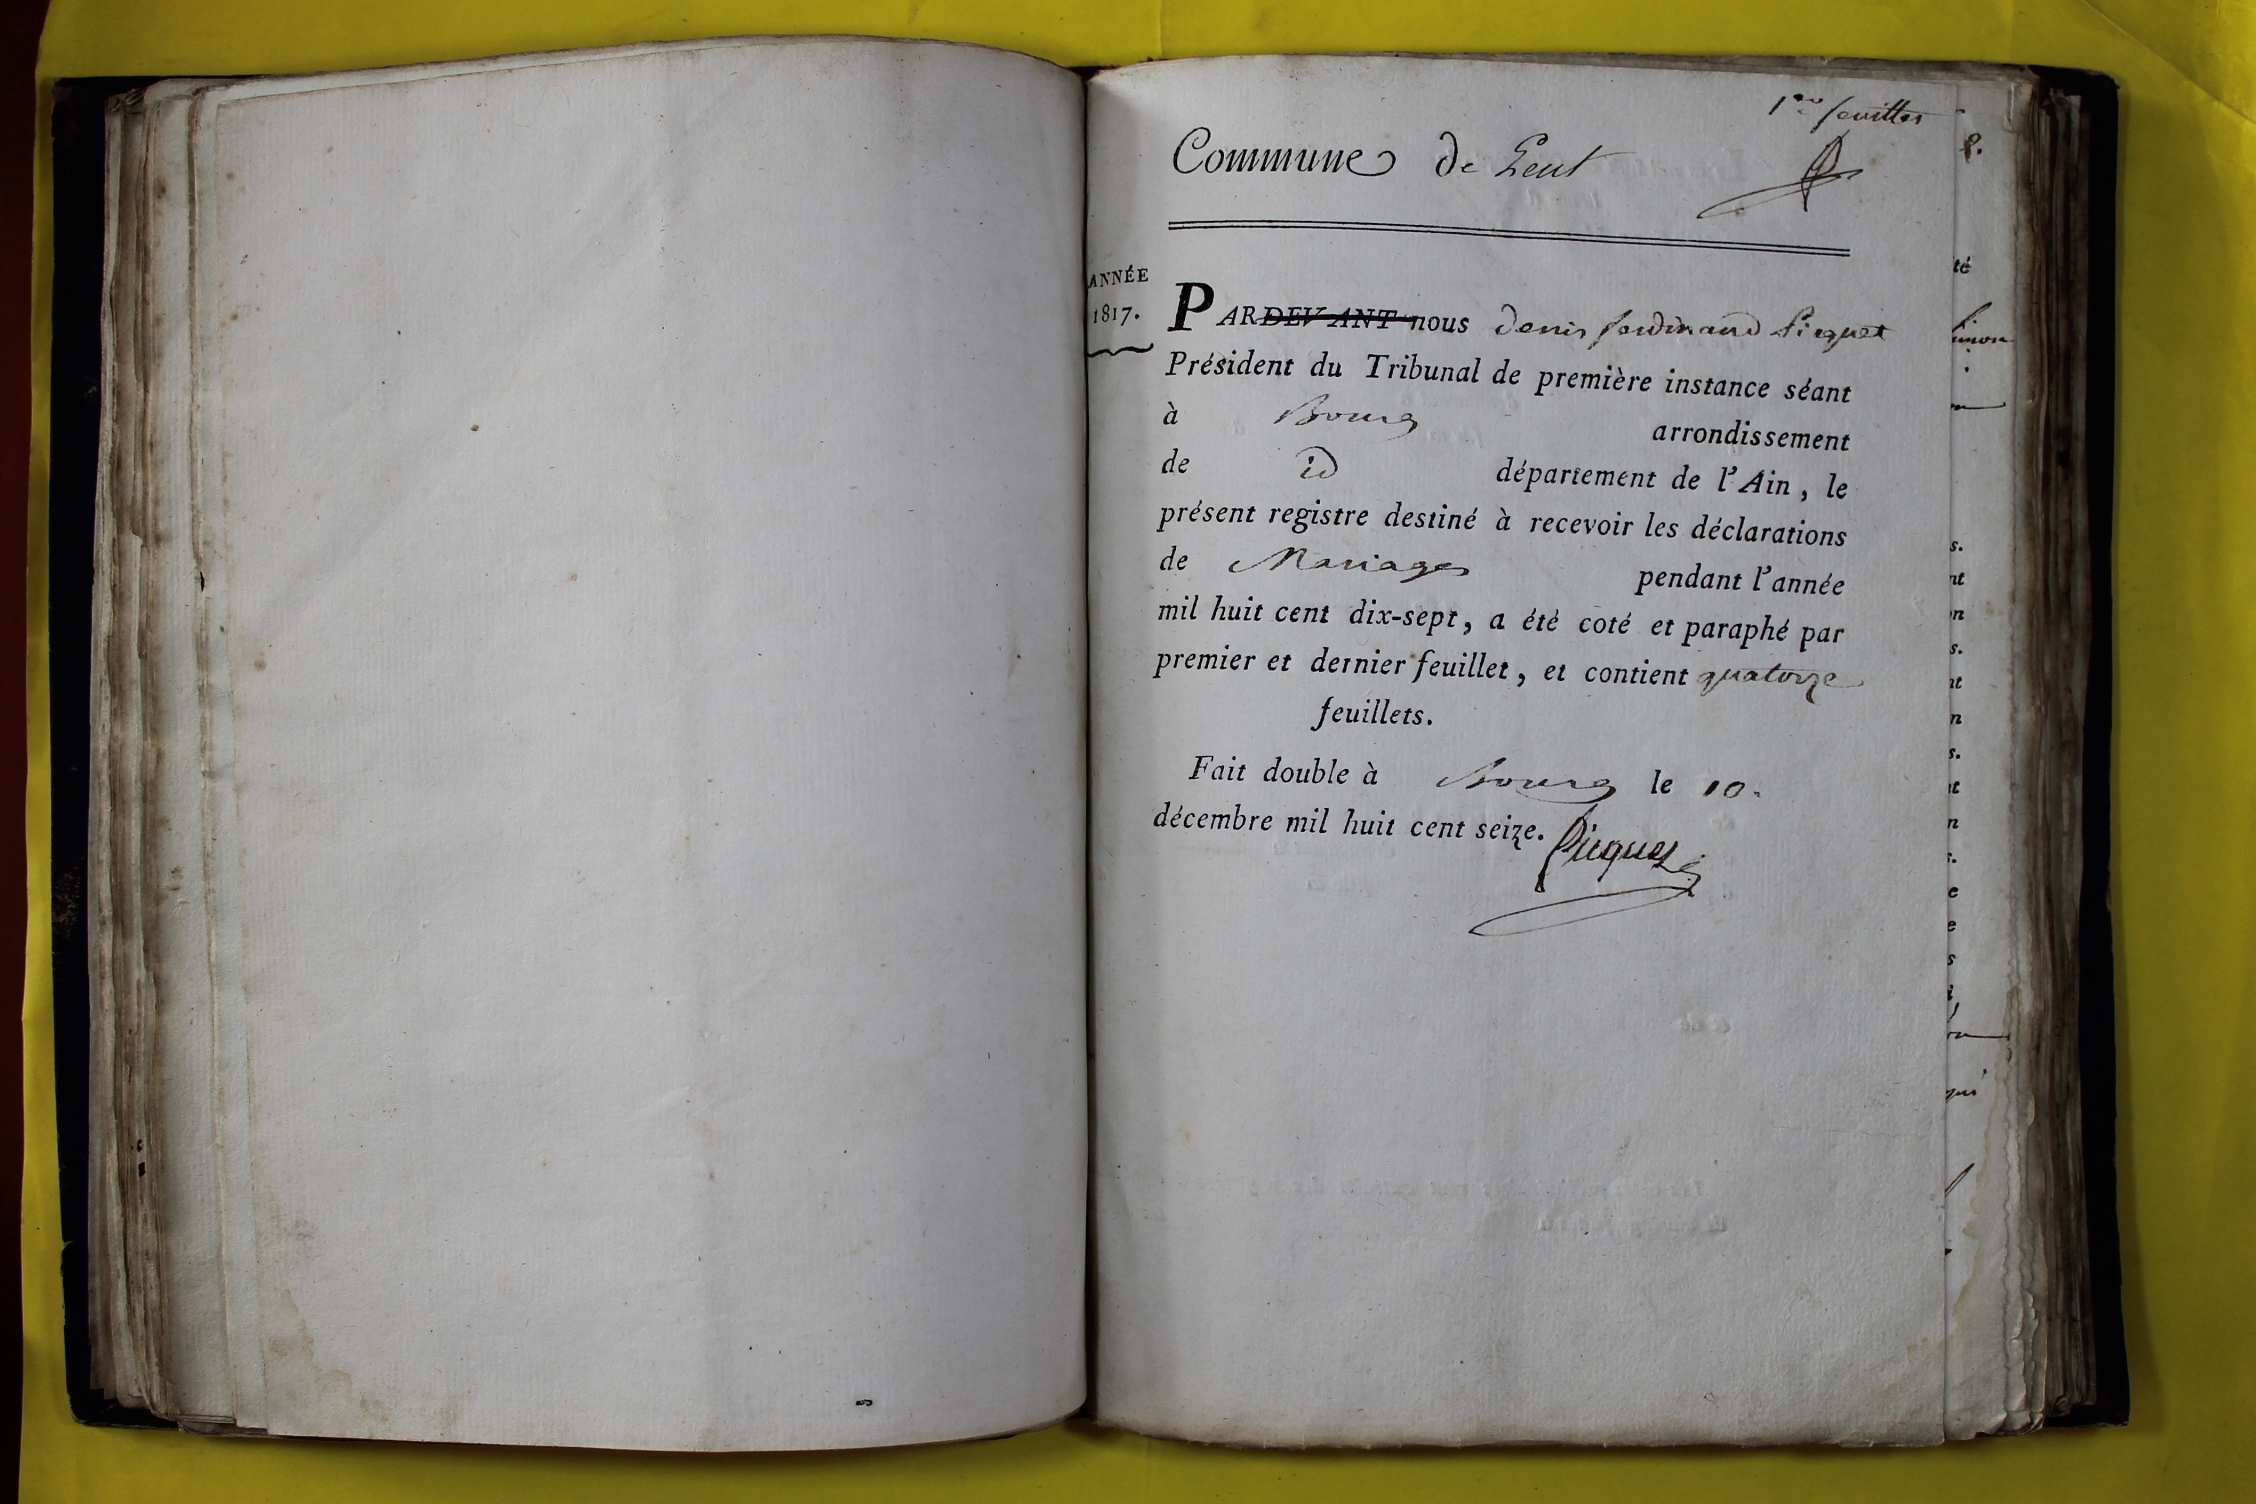 1er feuillet
Commune de Lent
ANNÉE
1817.
PARDEVANT nous denis ferdinand Picquet
Président du Tribunal de première instance séant
à Bourg arrondissement
de id département de l'Ain, le
présent registre destiné à recevoir les déclarations
de Mariages pendant l'année
mil huit cent dix-sept, a été coté et paraphé par
premier et dernier feuillet, et contient quatorze
feuillets.
Fait double à Bourg le 10.
décembre mil huit cent seize.
Picquet